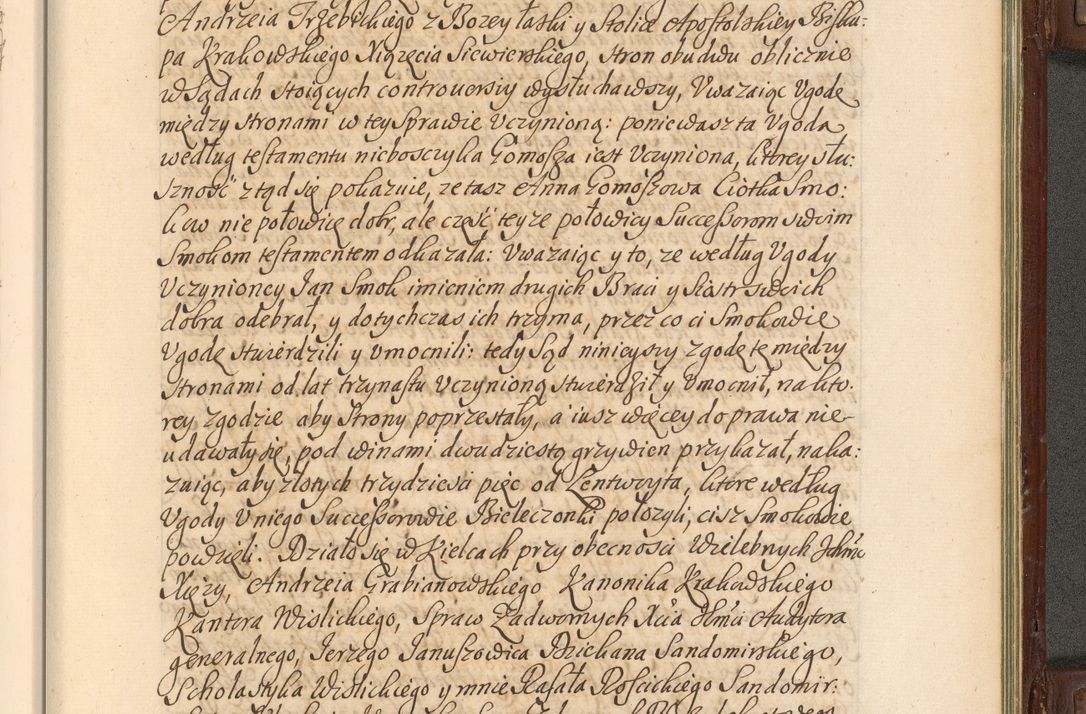 Andrzeia Trzebickiego z Bozey łaski y Stolice Apostolskiey Bisku:
pa Krakowskiego Xiązęcia Siewierskiego, stron obudwu oblicznie
w Sądach stoiących controuersiy wysłuchawszy, Uwazaiąc Ugodę
między stronami w tey Sprawie Uczynioną: ponieważ ta Ugoda
według testamentu nieboszczyka Gomosza iest Uczyniona, ktorey słu:
szność ztąd się pokazuie, ze taz Anna Gomoszowa Ciotka Smo:
kow nie połowicę dobr, ale część teyze połowicy Successorom swoim
Smokom testamentem odkazała: Uwazaiąc y to, ze według Ugody
Uczynioney Jan Smok imieniem drugich Braci y Siostr swoich
dobra odebrał, y dotychczas ich trzyma, przez co ci Smokowie
Ugodę stwierdzili y umocnili: tedy Sąd ninieyszy zgodę tę między
stronami od lat trzynastu Uczynioną stwierdził y Umocnił, na kto:
rey zgodzie aby strony poprzestały, a iusz więcey do prawa nie
udawały się, pod winami dwudziestą grzywien przykazał, naka:
zuiąc, aby złotych trzydziesci pięc od Lentwoyta, ktore według
Ugody U niego Successorowie Bieleczonki połozyli, cisz Smokowie
powzięli. Działo się w Kielcach przy obecnosci Wielebnych Ichmci
Xięzy, Andrzeia Grabianowskiego Kanonika Krakowskiego
Kantora Wislickiego, Spraw Zadwornych Xcia Jmci Audytora
generalnego, Jerzego Januszowica Dziekana Sandomirskiego,
Scholastyka Wislickiego y mnie Rafała Roscickiego Sandomir: